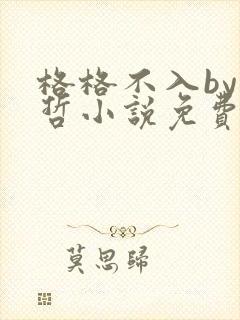 格格不入by
哲小說免費
莫思歸